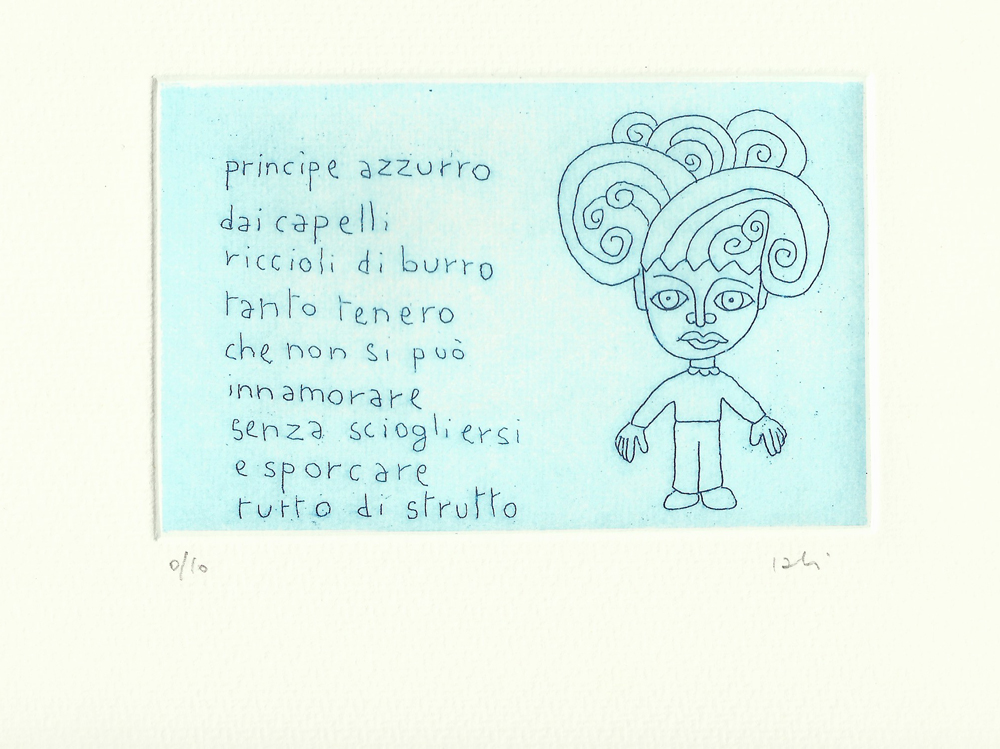 principe azzurro
dai capelli
riccioli di burro
tanto tenero
che non si può
innamorare
senza sciogliersi
e sporcare
tutto di strutto
0/10